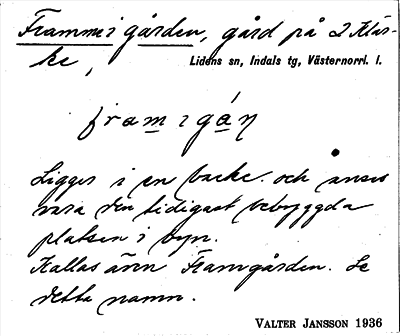 Frammigården, gård på 2 Klär-
ke, Lidens sn, Indals tg, Västernorrl. l.
framıgán
Ligger i en backe och anses
vara den tidigast bebyggda
platsen i byn.
Kallas även Framgården. Se
detta namn.
VALTER JANSSON 1936